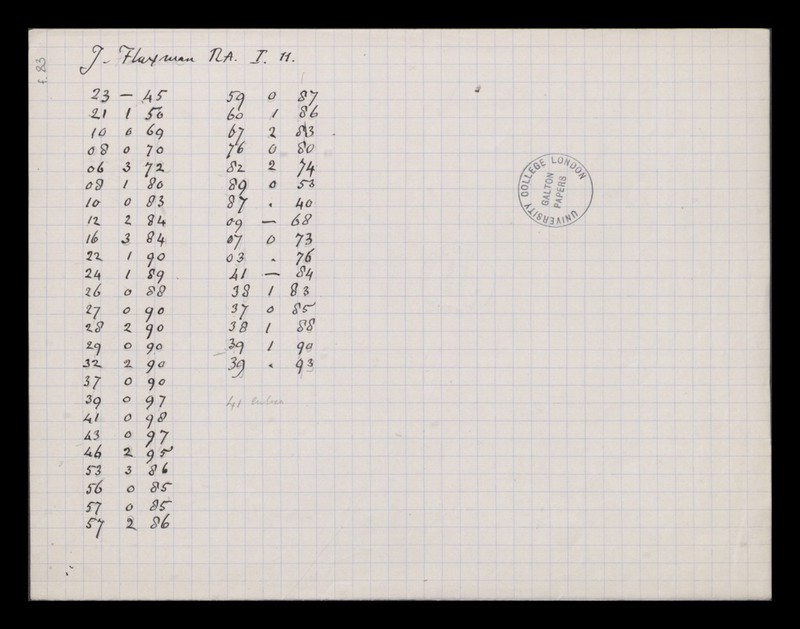 f. 83
J. Flaxman RA. I. H.
23 — 45
21 1 56
10 0 69
08 0 70
06 3 72
08 1 80
10 0 83
12 2 84
16 3 84
22 1 90
24 1 89
26 0 88
27 0 90
28 2 90
29 0 90
32 2 90
37 0 90
39 0 97
41 0 98
43 0 97
46 2 95
53 3 86
56 0 85
57 0 85
57 2 86
59 0 87
60 1 86
67 2 83
76 0 80
82 2 74
89 0 53
87 . 40
09 — 68
07 0 73
03 . 76
41 — 84
38 1 83
37 0 85
38 1 88
39 1 90
39 . 93
41
UNIVERSITY COLLEGE LONDON
GALTON
PAPERS